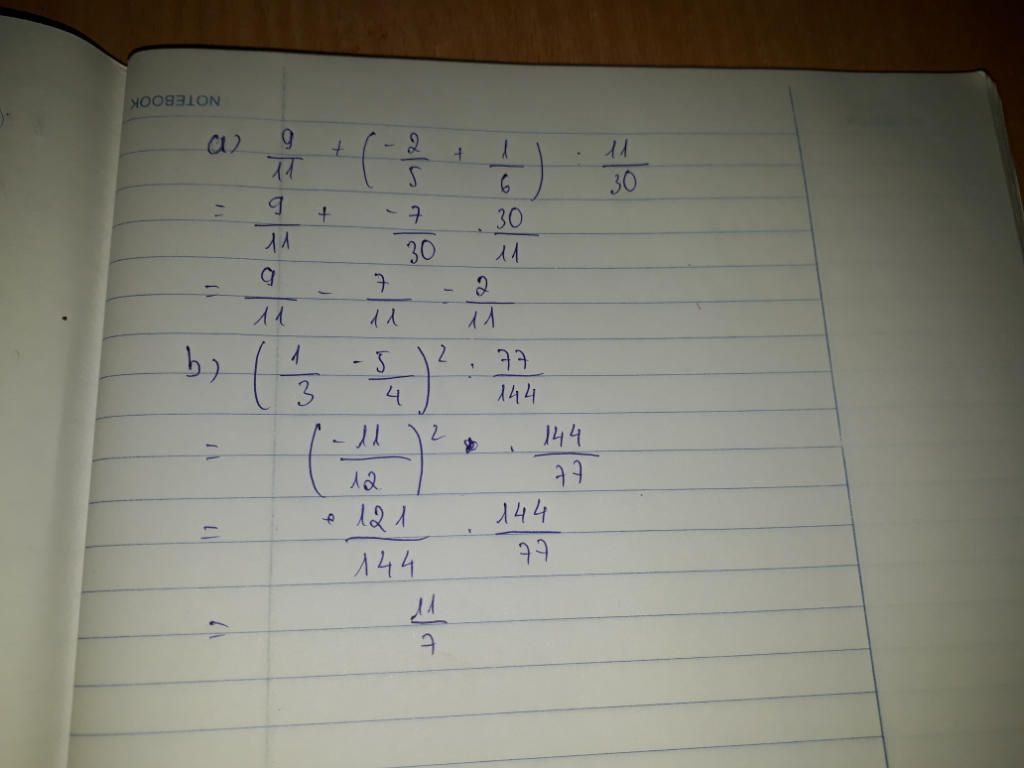 NOTEBOOK
a) 9/11 + (-2/5 + 1/6) : 11/30
= 9/11 + -7/30 . 30/11
= 9/11 - 7/11 = 2/11
b) (1/3 - 5/4)² : 77/144
= (-11/12)² . 144/77
= 121/144 . 144/77
= 11/7